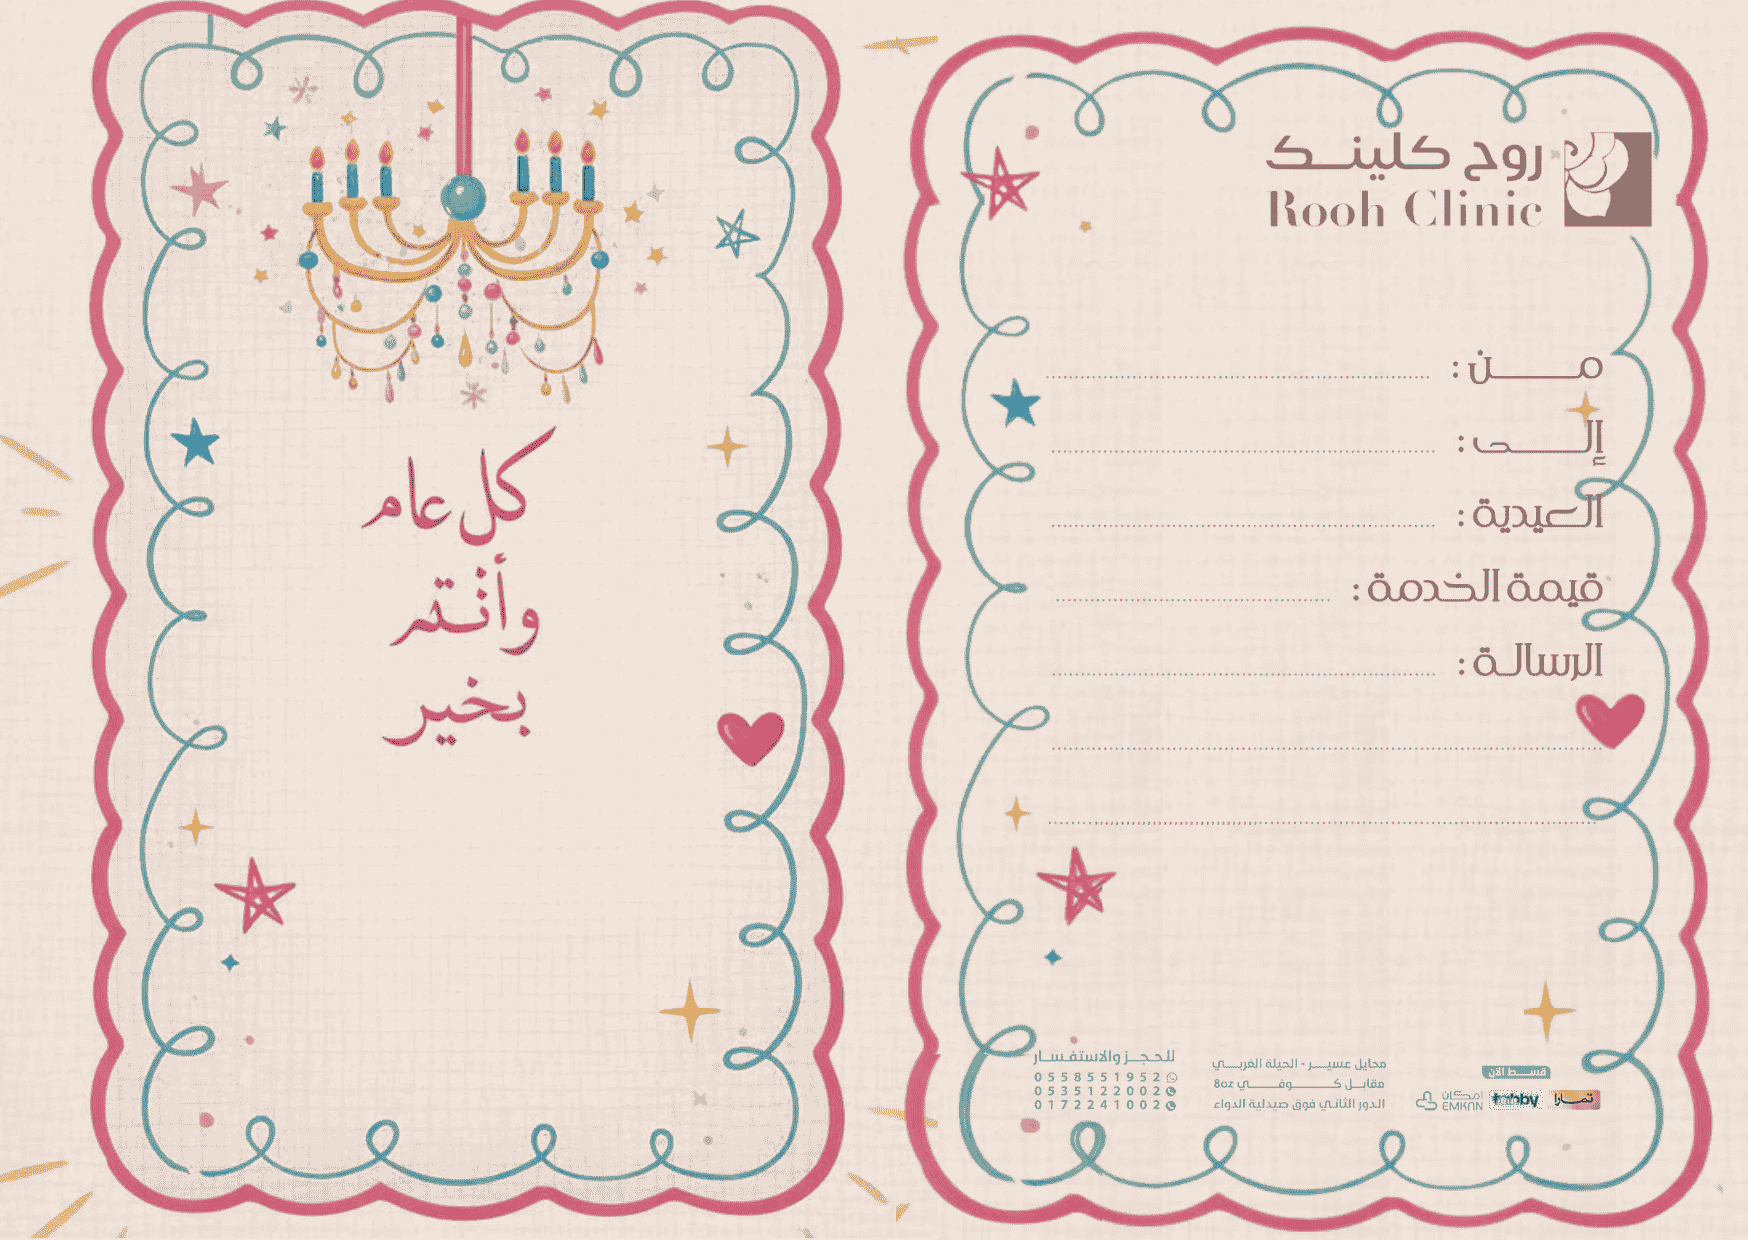 كل عام
وأنتم
بخير
روح كلينك
Rooh Clinic
من :
إلى :
العيدية :
قيمة الخدمة :
الرسالة :
للحجز والاستفسار
0558551952
0535122002
0172241002
محايل عسير - الحيلة الغربي
مقابل كوفي 8oz
الدور الثاني فوق صيدلية الدواء
قسط الآن
تمارا
tabby
إمكان
EMKAN